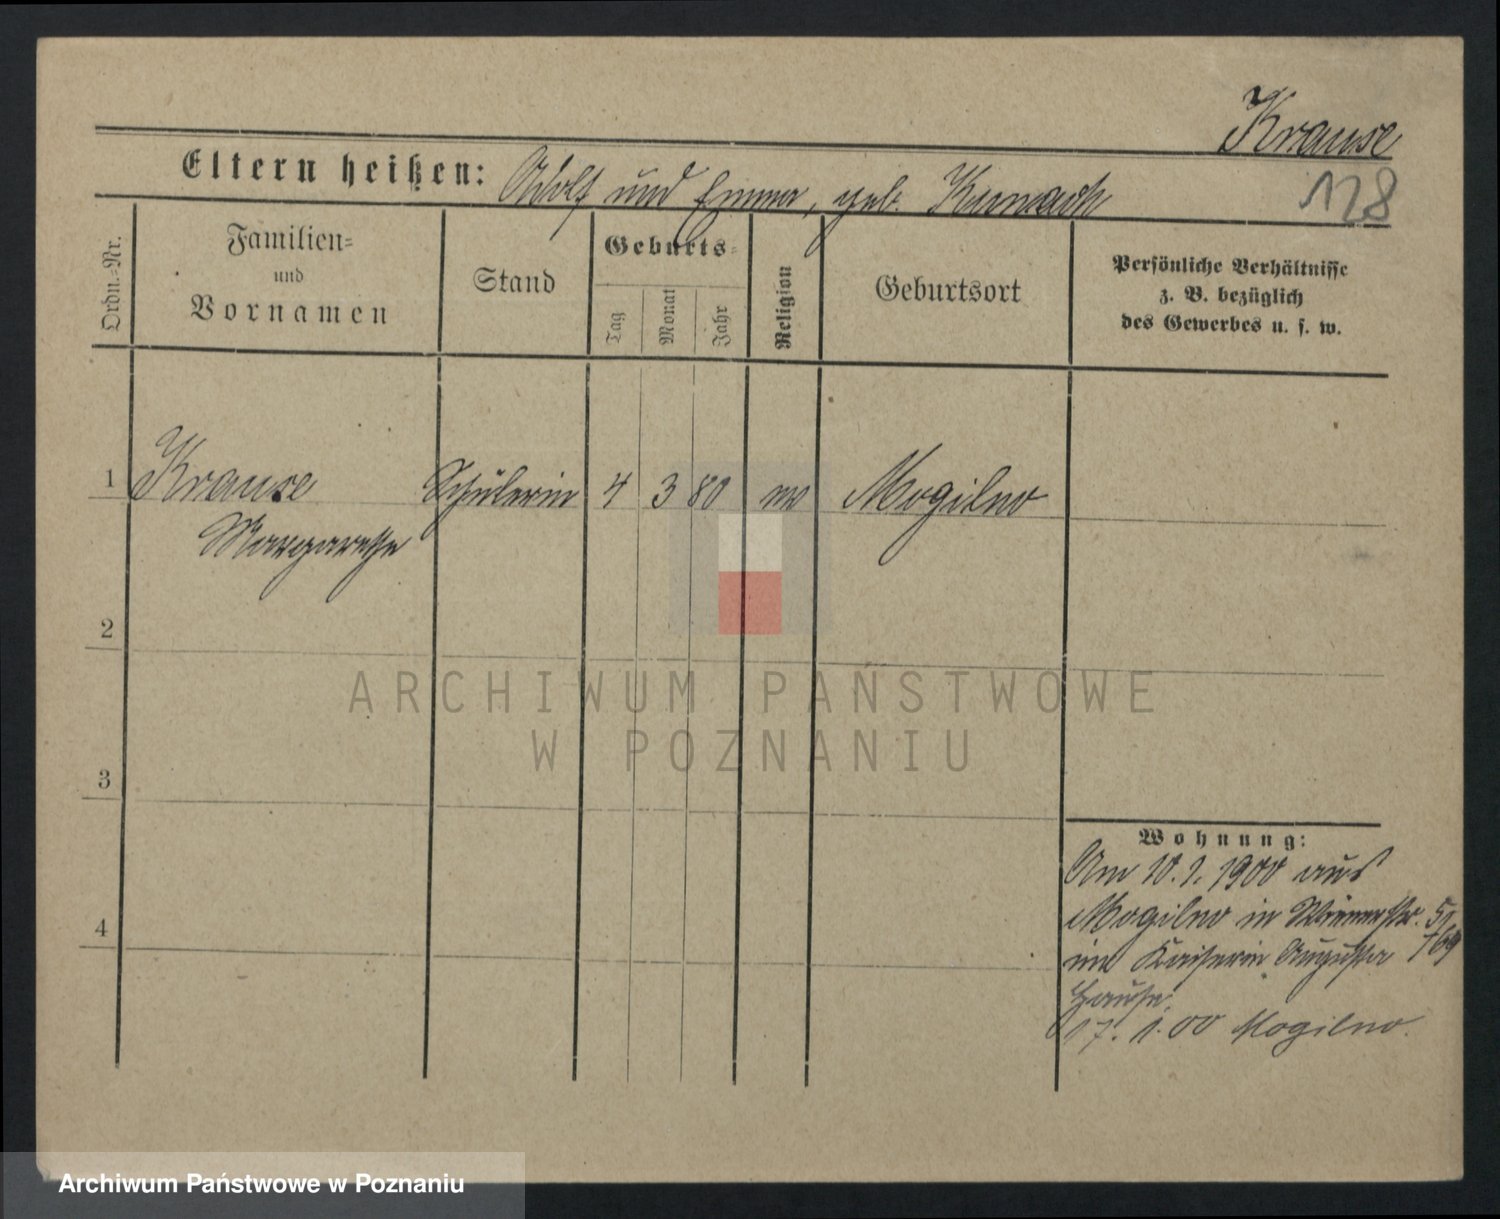 Krause
128
Eltern heißen: Adolf und Emma, geb.
Ordn.-Nr.
Familien-
und
Vornamen
Stand
Geburts-
Tag
Monat
Jahr
Religion
Geburtsort
Persönliche Verhältnisse
z. B. bezüglich
des Gewerbes u. s. w.
1 Krause Schülerin 4 3 80 ev Mogilno
Margarethe
2
ARCHIWUM PAŃSTWOWE
W POZNANIU
3
Wohnung:
Am 10. 1. 1900 aus
Mogilno in Wienerstr. 5,
im Kaiserin Augusta 769
Hause.
17. 1. 00 Mogilno.
4
Archiwum Państwowe w Poznaniu